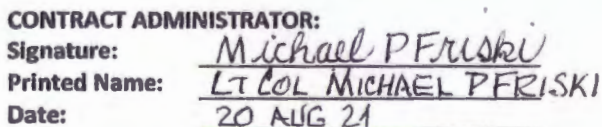 CONTRACT ADMINISTRATOR:
Signature: Michael P Friski
Printed Name: LT COL MICHAEL P FRISKI
Date: 20 AUG 21